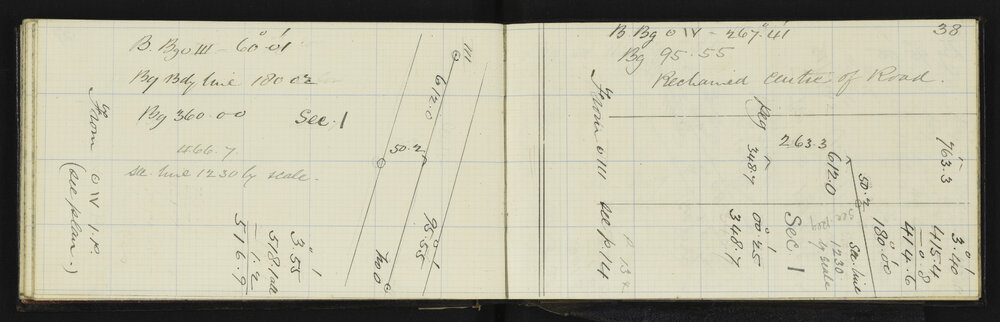 B. Bg o III - 60° 01'
Bg Bdy line 180.02
Bg 360.00
Sec. 1
466.7
Sec. line 1230 by scale.
From o IV
(see plan.)
3° 55'
518.1
- 1.2
516.9
III
612.0
50.2
95° 55'
38
B Bg o IV - 267° 41'
Bg 95.55
Rechained centre of Road.
From o III see p. 14
Peg
348.7
263.3
612.0
50.2
763.3
00° 25'
348.7
Sec. 1
Sec. line
1230
by scale
180° 00
3° 40'
415.4
- 0.8
414.6
p. 13